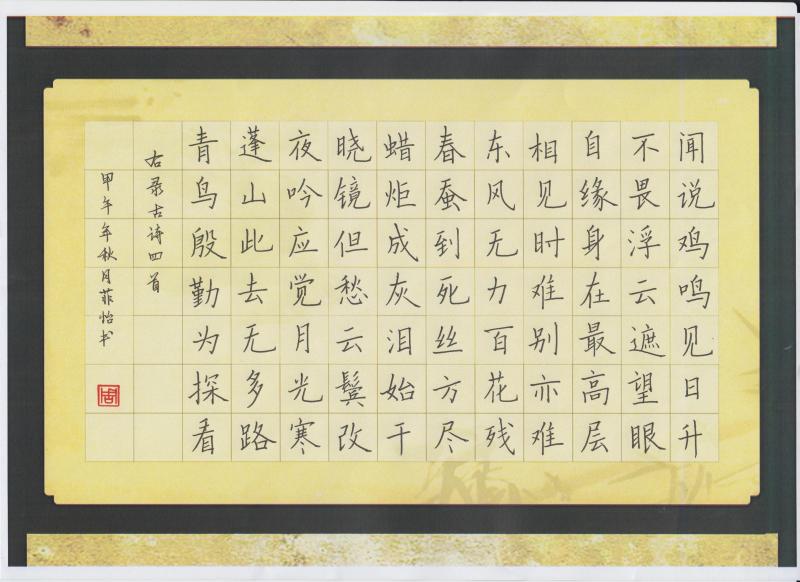 闻说鸡鸣见日升
不畏浮云遮望眼
自缘身在最高层
相见时难别亦难
东风无力百花残
春蚕到死丝方尽
蜡炬成灰泪始干
晓镜但愁云鬓改
夜吟应觉月光寒
蓬山此去无多路
青鸟殷勤为探看
右录古诗四首
甲午年秋月菲怡书